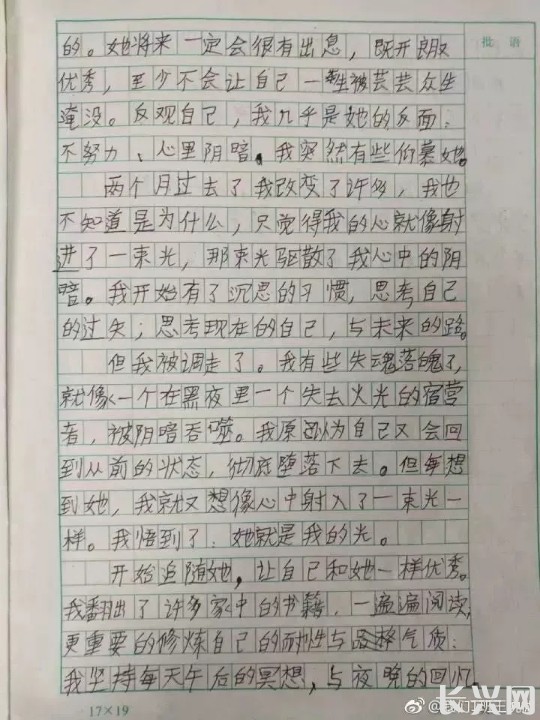 批语
的。她将来一定会很有出息，既开朗又
优秀，至少不会让自己一生被芸芸众生
淹没。反观自己，我几乎是她的反面：
不努力、心里阴暗。我突然有些仰慕她。
两个月过去了我改变了许多，我也
不知道是为什么，只觉得我的心就像射
进了一束光，那束光驱散了我心中的阴
暗。我开始有了沉思的习惯，思考自己
的过失；思考现在的自己，与未来的路。
但我被调走了。我有些失魂落魄了，
就像一个在黑夜里一个失去火光的宿营
者，被阴暗吞噬。我原以为自己又会回
到从前的状态，彻底堕落下去。但每想
到她，我就又想像心中射入了一束光一
样。我悟到了：她就是我的光。
开始追随她，让自己和她一样优秀。
我翻出了许多家中的书籍，一遍遍阅读，
更重要的修炼自己的耐性与品格气质：
我坚持每天午后的冥想，与夜晚的回忆。
17×19
长兴网